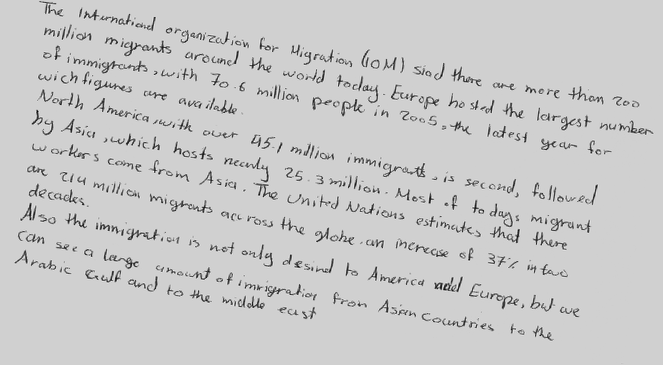 The International organization for Migration (IOM) siad there are more than 200
million migrants around the world today. Europe hosted the largest number
of immigrants, with 70.6 million people in 2005, the latest year for
wich figures are available.
North America, with over 45.1 million immigrants, is second, followed
by Asia, which hosts nearly 25.3 million. Most of todays migrant
workers come from Asia. The United Nations estimates that there
are 214 million migrants accross the globe, an increase of 37% in two
decades.
Also the immigration is not only desind to America and Europe, but we
can see a large amount of imrigration from Asian countries to the
Arabic Gulf and to the middle east